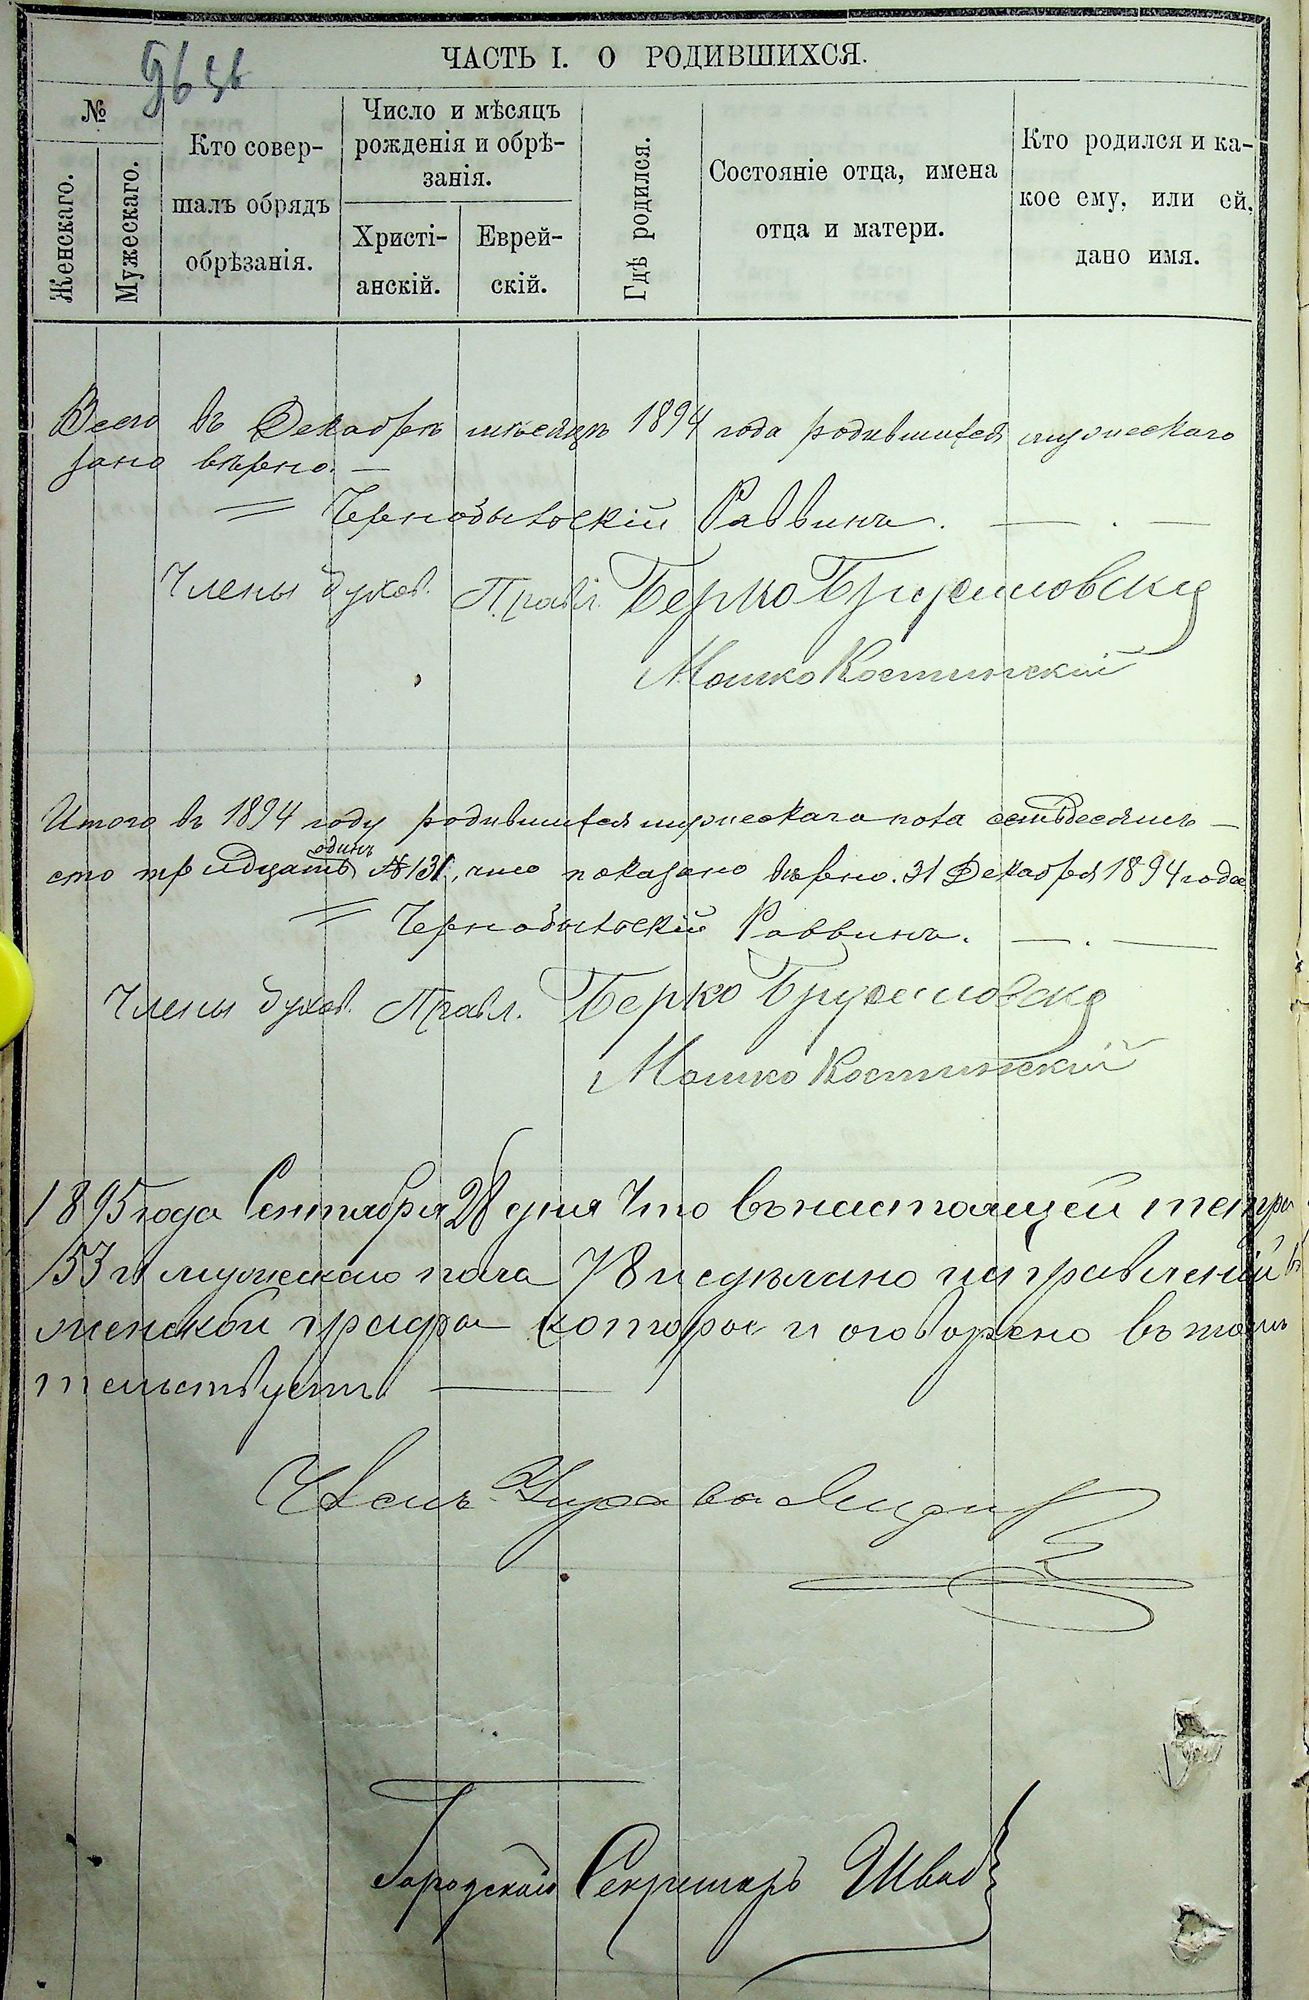 ЧАСТЬ I. О РОДИВШИХСЯ.
№
Женскаго.
Мужескаго.
Кто совер-
шалъ обрядъ
обрѣзанія.
Число и мѣсяцъ
рожденія и обрѣ-
занія.
Христі-
анскій.
Еврей-
скій.
Гдѣ родился.
Состояніе отца, имена
отца и матери.
Кто родился и ка-
кое ему, или ей,
дано имя.
Всего въ Декабрѣ мѣсяцѣ 1894 года родившихся мужескаго
зано вѣрно. —
= Чернобыльскій Раввинъ. — . —
Члены духов. Правл. Берко
Мошко Костинскій
Итого въ 1894 году родившихся мужескаго пола семьдесятъ —
одинъ
сто тридцать №131, что показано вѣрно. 31 Декабря 1894 года
= Чернобыльскій Раввинъ. — . —
Члены духов. Правл. Берко
Мошко Костинскій
1895 года Сентября 28 дня Что въ настоящей тетра
153 и мужескаго пола 78 и сдѣлано исправленій въ
женской графѣ которое и оговорено въ томъ
тельствуетъ. —
Членъ Управы
Городской Секретарь